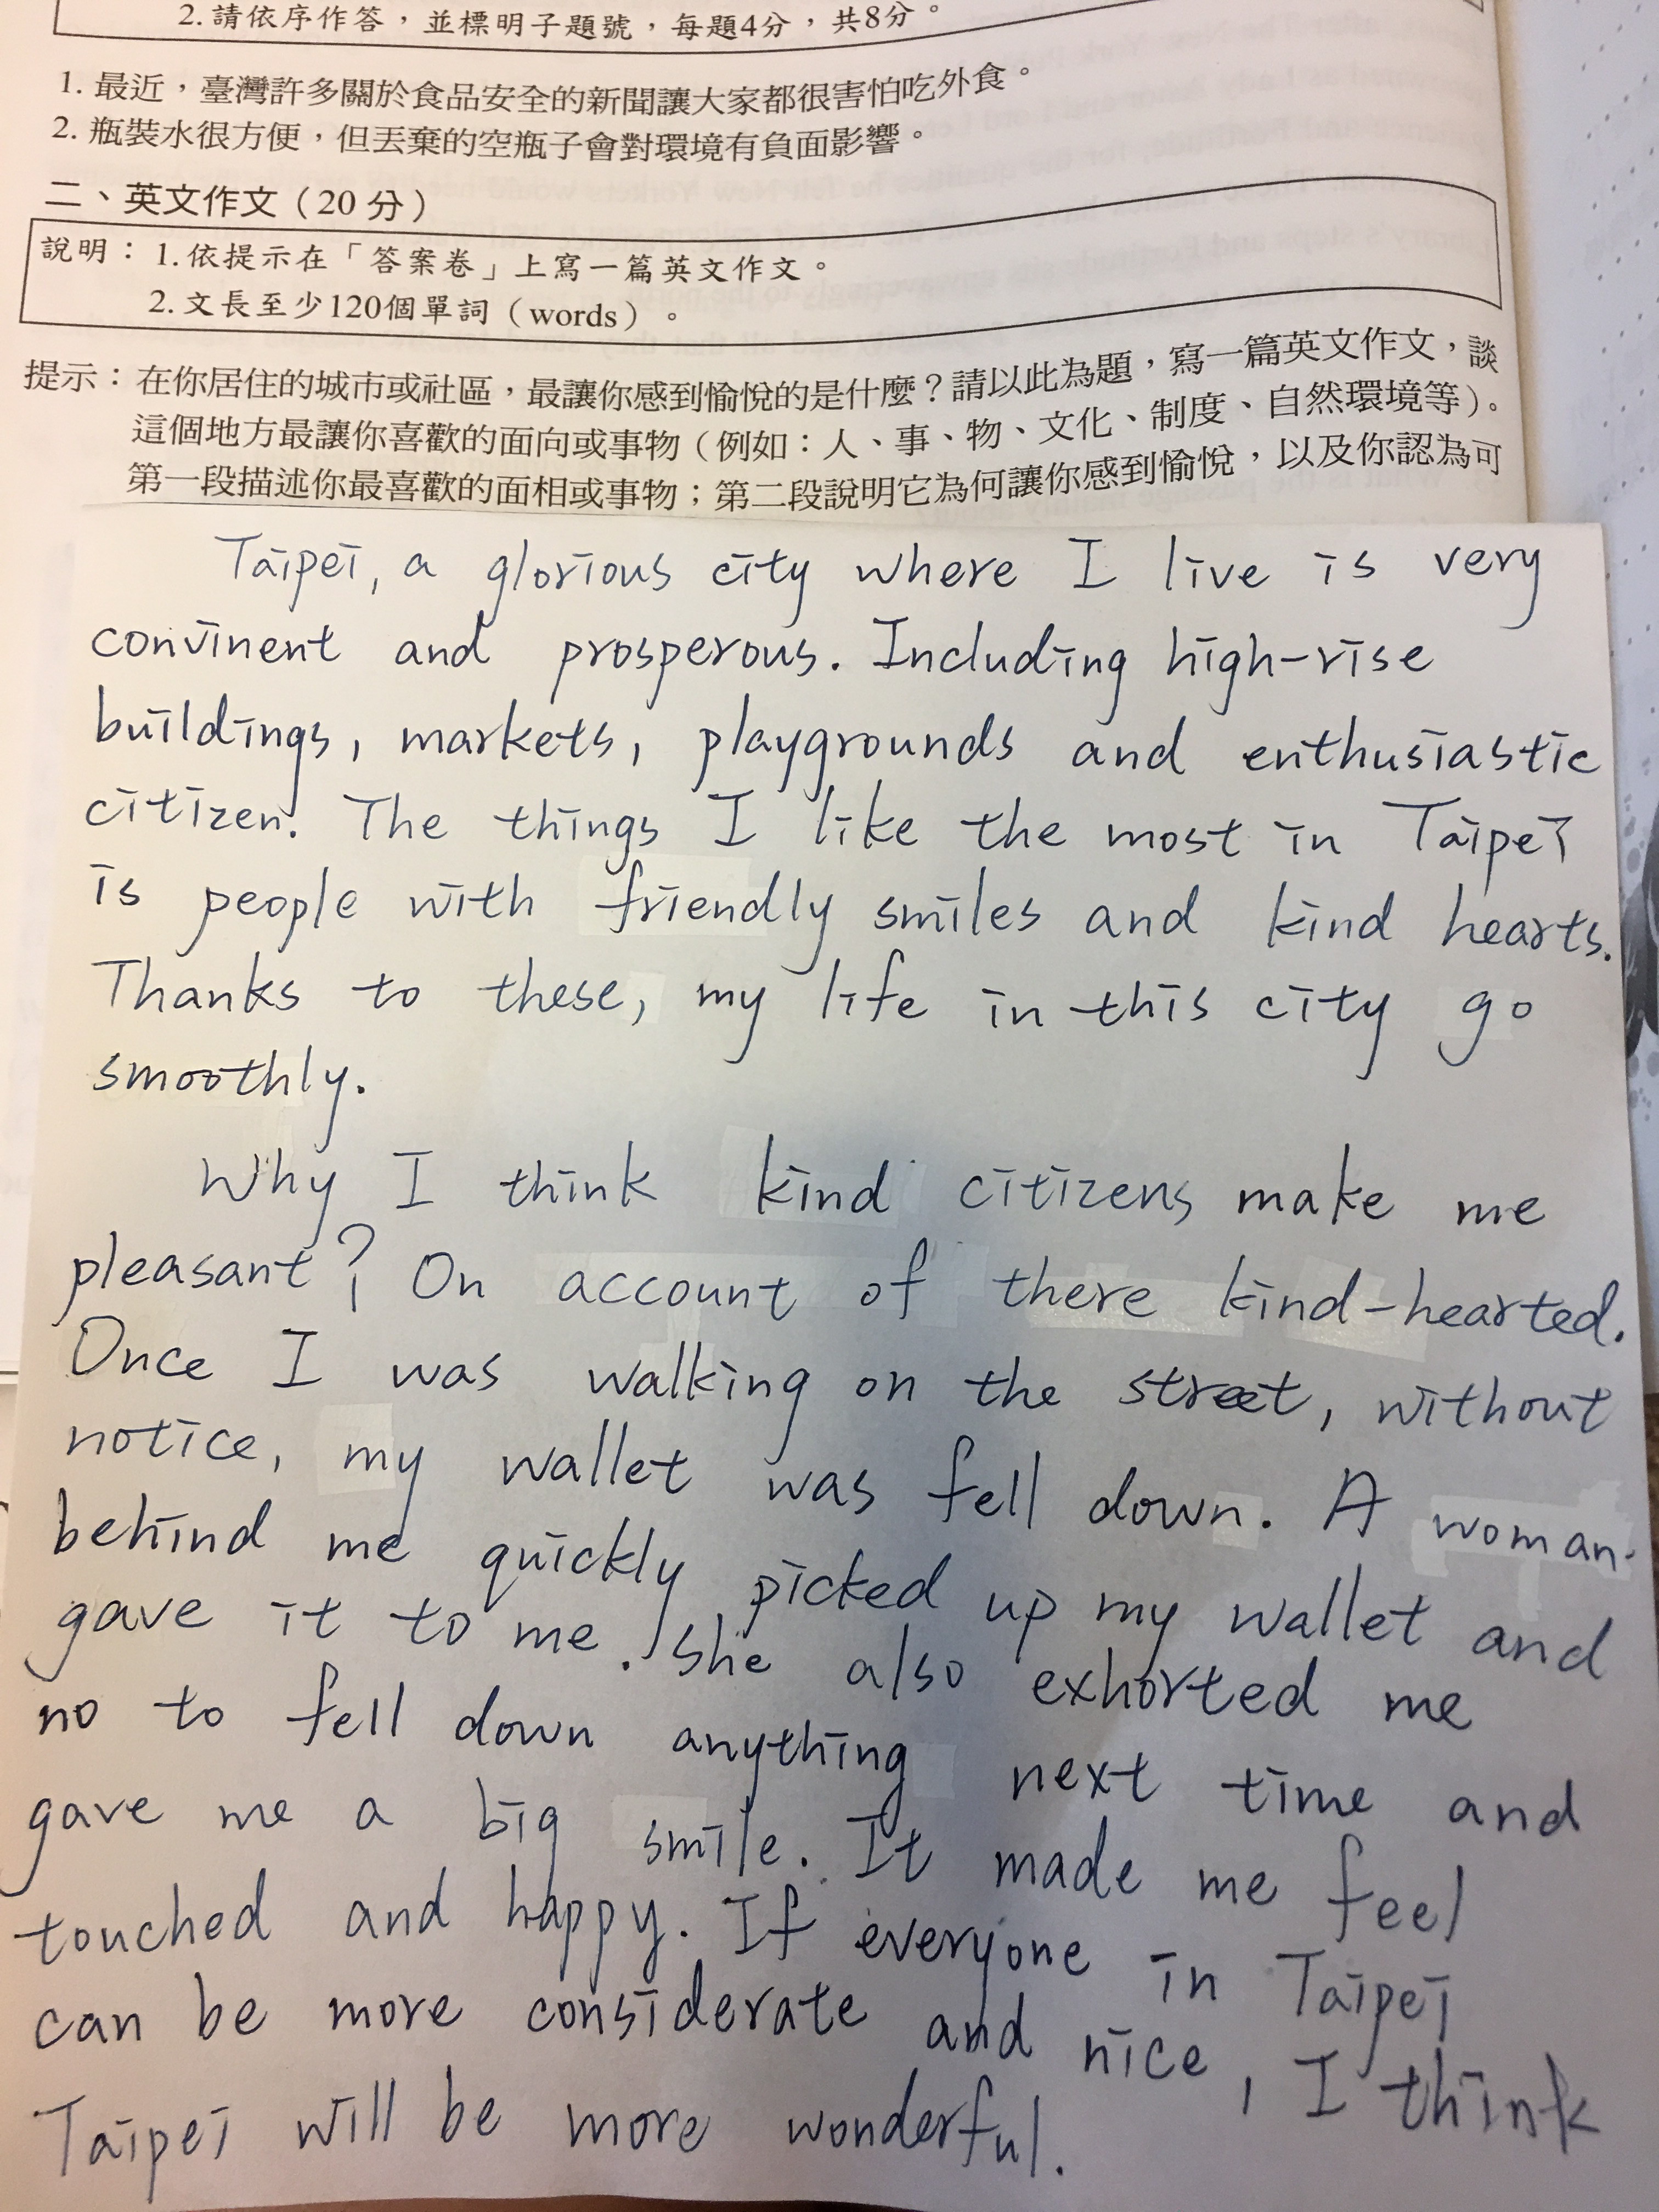 2. 請依序作答，並標明子題號，每題4分，共8分。
1. 最近，臺灣許多關於食品安全的新聞讓大家都很害怕吃外食。
2. 瓶裝水很方便，但丟棄的空瓶子會對環境有負面影響。
二、英文作文（20 分）
說明：1. 依提示在「答案卷」上寫一篇英文作文。
2. 文長至少120個單詞（words）。
提示：在你居住的城市或社區，最讓你感到愉悅的是什麼？請以此為題，寫一篇英文作文，談
這個地方最讓你喜歡的面向或事物（例如：人、事、物、文化、制度、自然環境等）。
第一段描述你最喜歡的面相或事物；第二段說明它為何讓你感到愉悅，以及你認為可
Taipei, a glorious city where I live is very
convinent and prosperous. Including high-rise
buildings, markets, playgrounds and enthusiastic
citizen. The things I like the most in Taipei
is people with friendly smiles and kind hearts.
Thanks to these, my life in this city go
smoothly.
Why I think kind citizens make me
pleasant? On account of there kind-hearted.
Once I was walking on the street, without
notice, my wallet was fell down. A woman
behind me quickly picked up my wallet and
gave it to me. She also exhorted me
no to fell down anything next time and
gave me a big smile. It made me feel
touched and happy. If everyone in Taipei
can be more considerate and nice, I think
Taipei will be more wonderful.